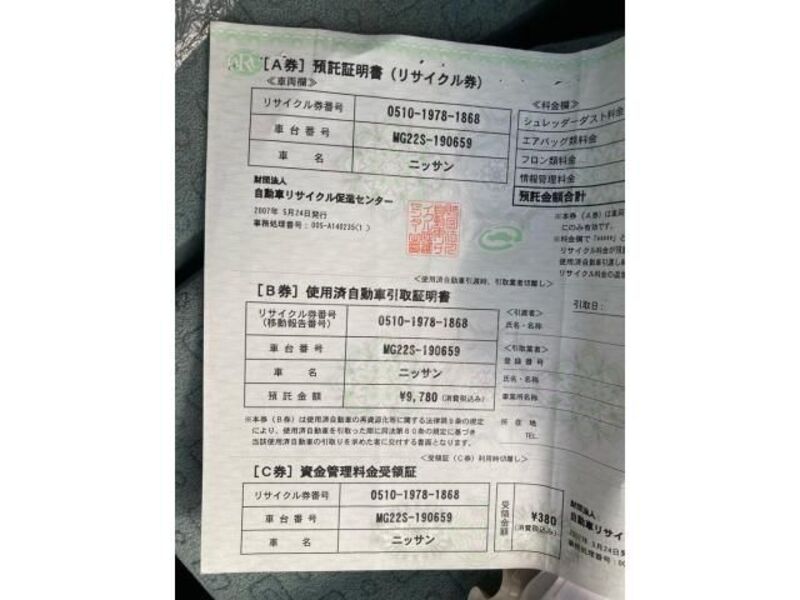 [A券] 預託証明書 (リサイクル券)
≪車両欄≫
リサイクル券番号 0510-1978-1868
車台番号 MG22S-190659
車名 ニッサン
財団法人
自動車リサイクル促進センター
2007年 5月24日発行
事務処理番号:005-A140235(1)
≪料金欄≫
シュレッダーダスト料金
エアバッグ類料金
フロン類料金
情報管理料金
預託金額合計
※本券(A券)は車両
にのみ有効です。
※料金欄で「*****」と
リサイクル料金が預
使用済自動車引渡し
リサイクル料金の追
<使用済自動車引渡時、引取業者切離し>
[B券] 使用済自動車引取証明書
リサイクル券番号
(移動報告番号) 0510-1978-1868
車台番号 MG22S-190659
車名 ニッサン
預託金額 ¥9,780 (消費税込み)
引取日:
<引渡者>
氏名・名称
<引取業者>
登録番号
氏名・名称
事業所名称
所在地
TEL.
※本券(B券)は使用済自動車の再資源化等に関する法律第9条の規定
により、使用済自動車を引取った際に同法第80条の規定に基づき
当該使用済自動車の引取りを求めた者に交付する書面となります。
<受領証(C券)利用時切離し>
[C券] 資金管理料金受領証
リサイクル券番号 0510-1978-1868
車台番号 MG22S-190659
車名 ニッサン
受領金額 ¥380
(消費税込み)
財団法人
自動車リサイ
2007年 5月24日発
事務処理番号:00